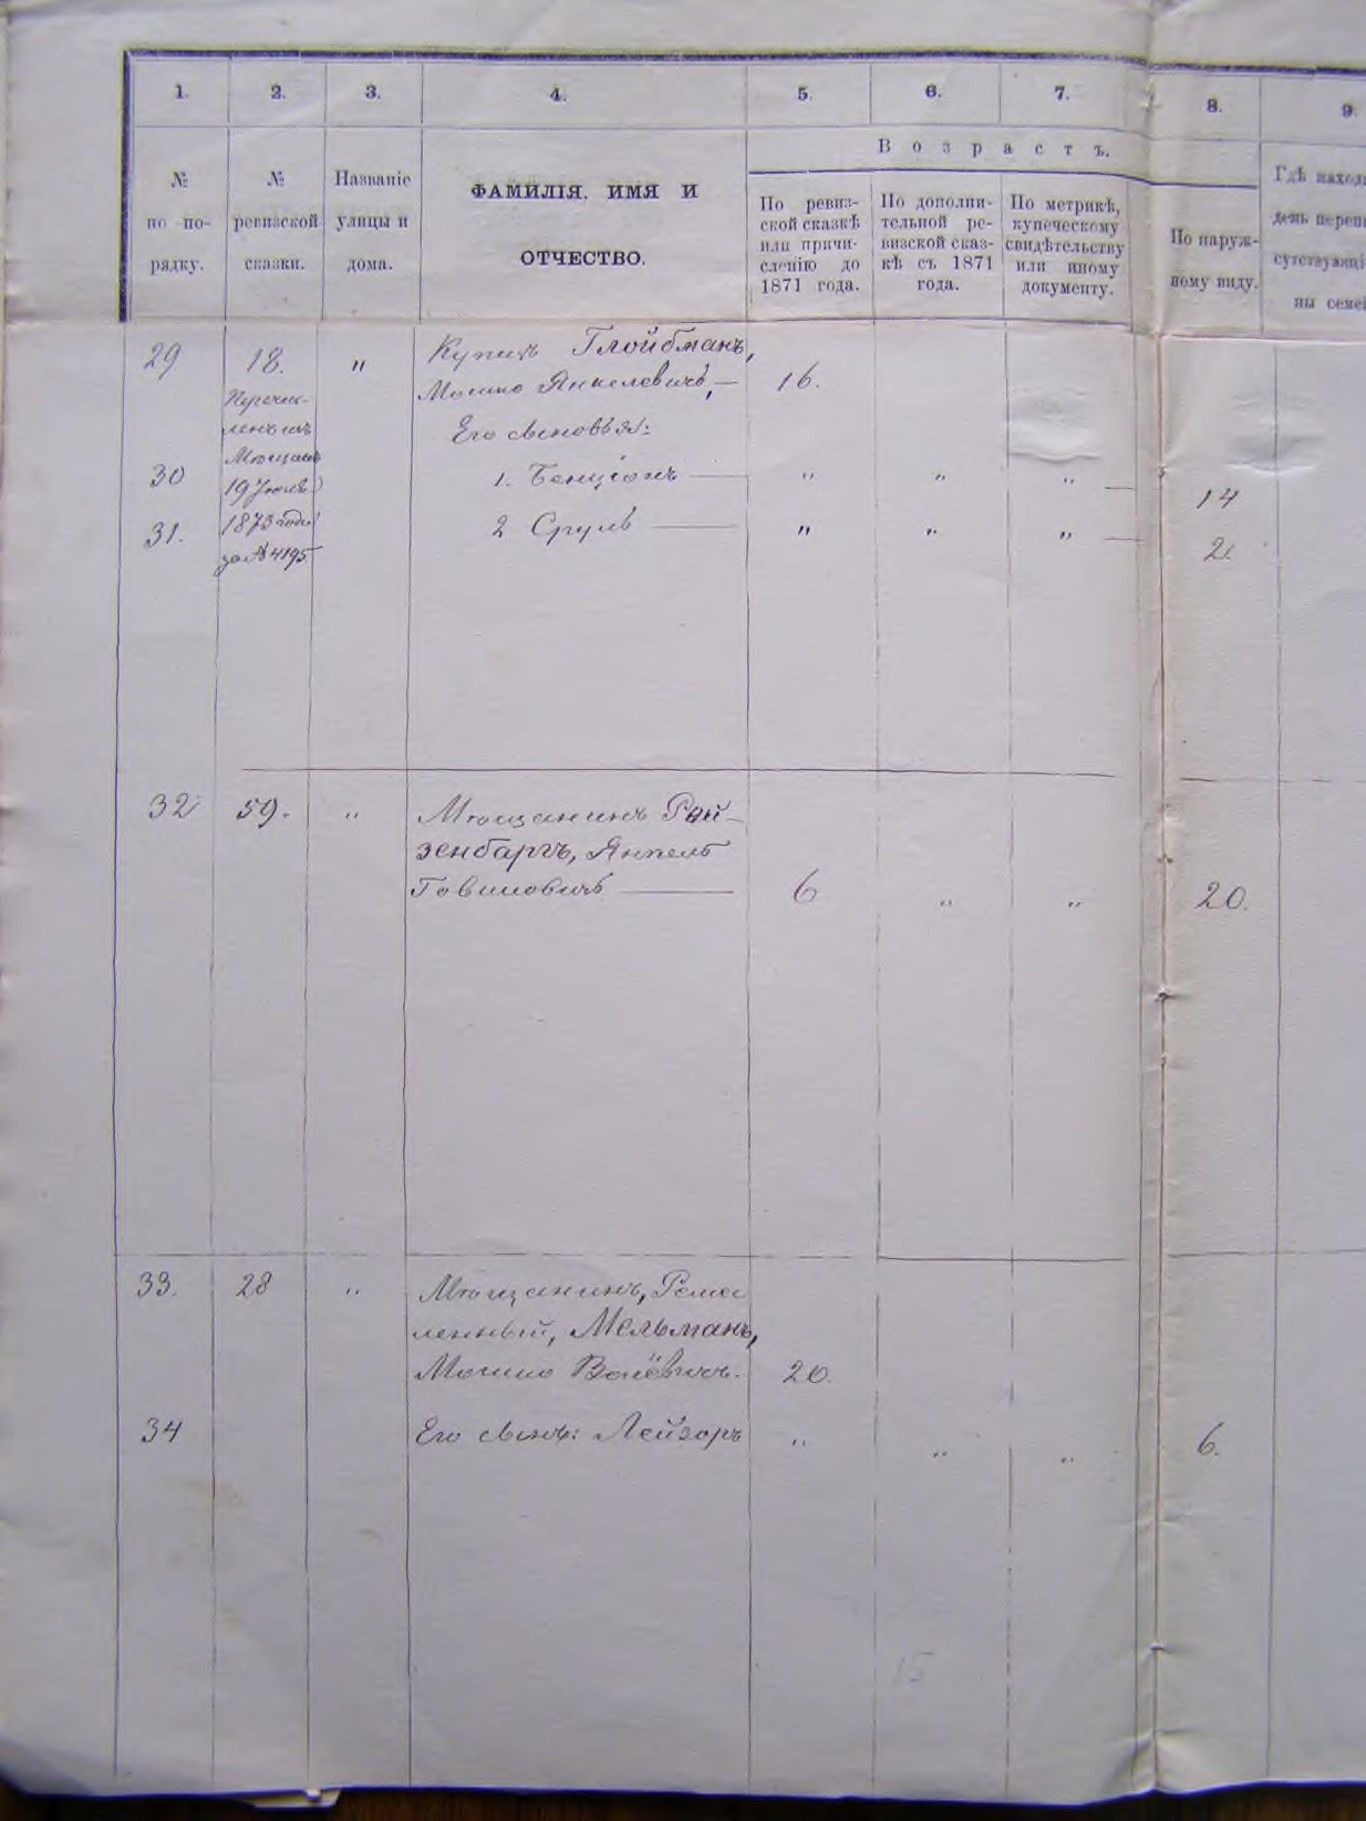 1. 2. 3. 4. 5. 6. 7. 8. 9.
Возрастъ.
№ по по-рядку.
№ ревизской сказки.
Названіе улицы и дома.
ФАМИЛІЯ, ИМЯ И ОТЧЕСТВО.
По ревиз-
ской сказкѣ
или причи-
сленію до
1871 года.
По дополни-
тельной ре-
визской сказ-
кѣ съ 1871
года.
По метрикѣ,
купеческому
свидѣтельству
или иному
документу.
По наруж-
ному виду.
Гдѣ наход
день переп
сутствующі
ны семе
29 18. " Купецъ Глойбманъ,
Мошко Янкелевичъ, — 16.
Перечис-
ленъ изъ
Мѣщанъ
19 Іюля
1873 года
за № 4195.
Его сыновья:
30 1. Бенціонъ — " " " — 14
31. 2 Сруль — " " " — 2.
32 59. " Мѣщанинъ Рай-
зенбаргъ, Янкель
Говшіовичъ — 6 " " 20.
33. 28 " Мѣщанинъ, Ремес
ленный, Мельманъ,
Мошко Волёвичъ. 20.
34 Его сынъ: Лейзоръ " " " 6.
15